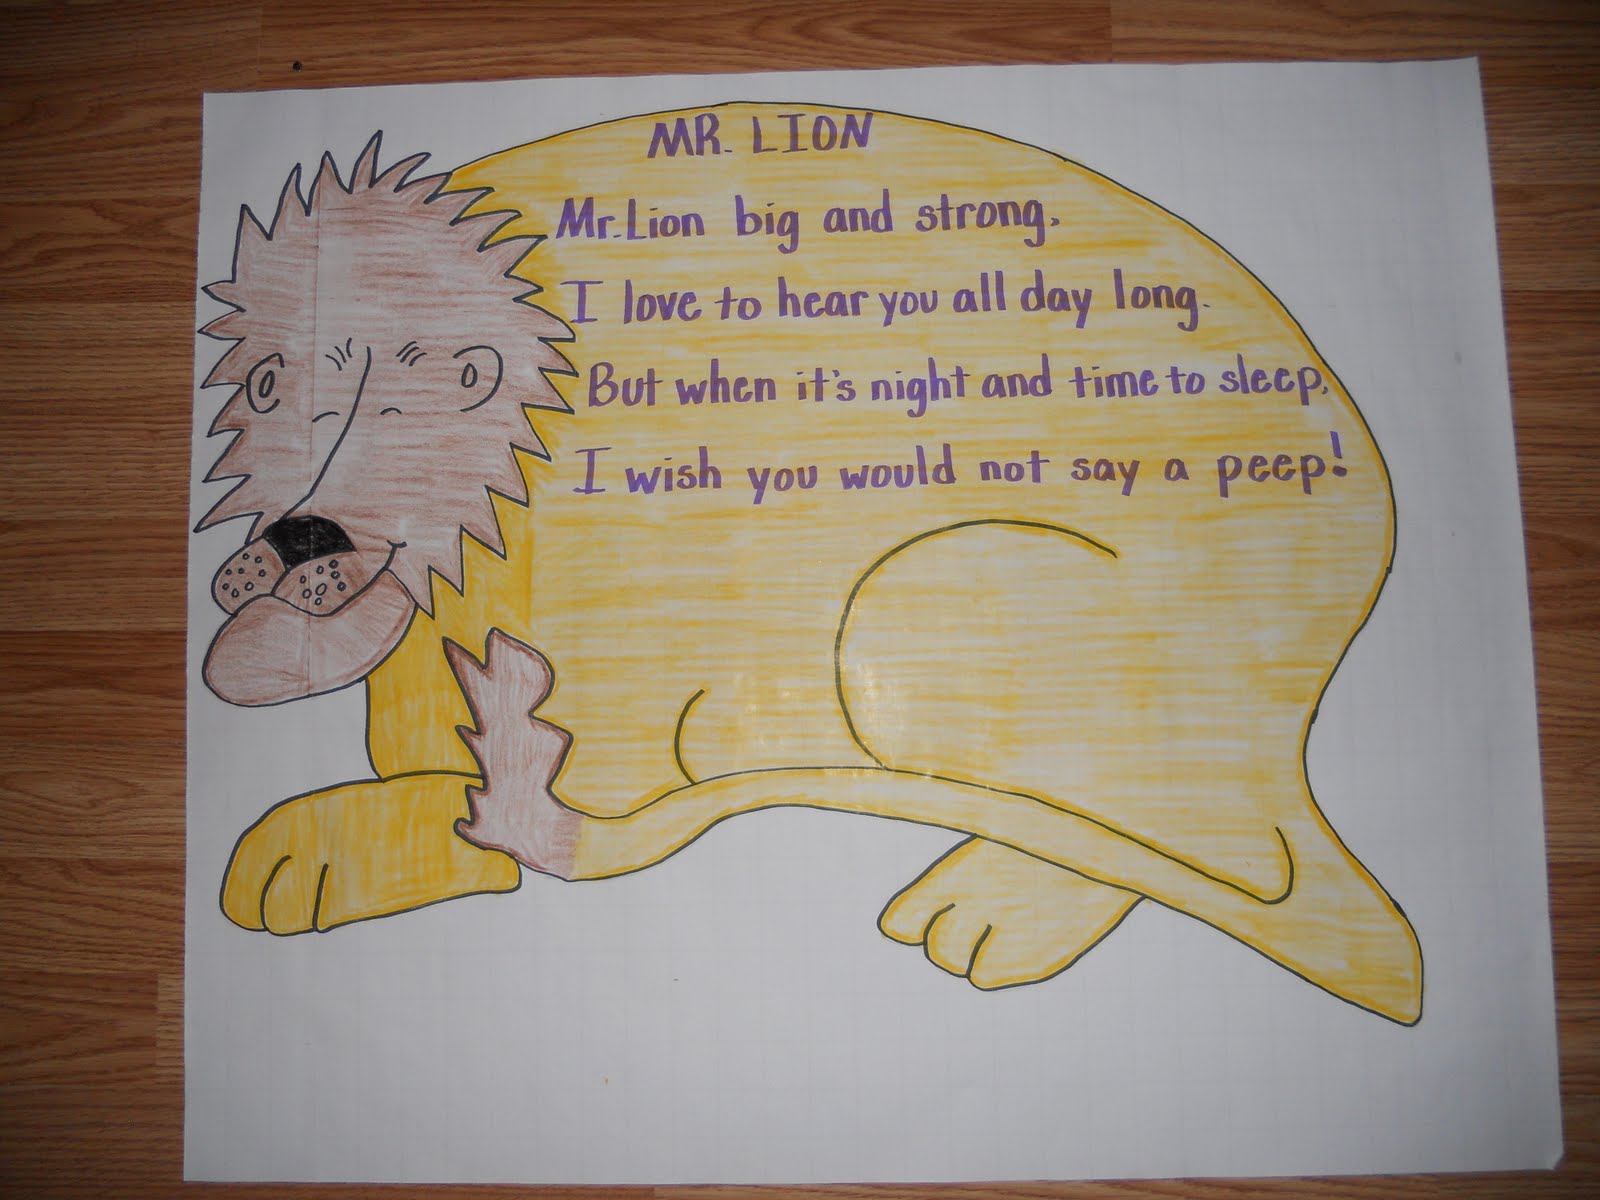 MR. LION
Mr. Lion big and strong,
I love to hear you all day long.
But when it's night and time to sleep,
I wish you would not say a peep!